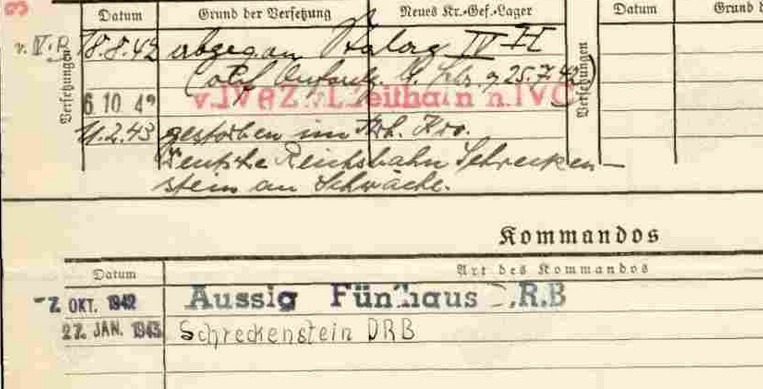 Datum Grund der Versetzung Neues Kr.-Gef.-Lager Datum Grund d
v. IV.B 18.8.42 abgeg. an Stalag IV H
25.7.42)
Versetzungen Versetzungen
6 10 42 v. IV B Z. w. L. Zeithain n. IV C
11.2.43 gestorben im Arb. Kdo.
Deutsche Reichsbahn Schrecken-
stein an Schwäche.
Kommandos
Datum Art des Kommandos
-7. OKT. 1942 Aussig Fünfhaus D.R.B
27. JAN. 1943 Schreckenstein DRB